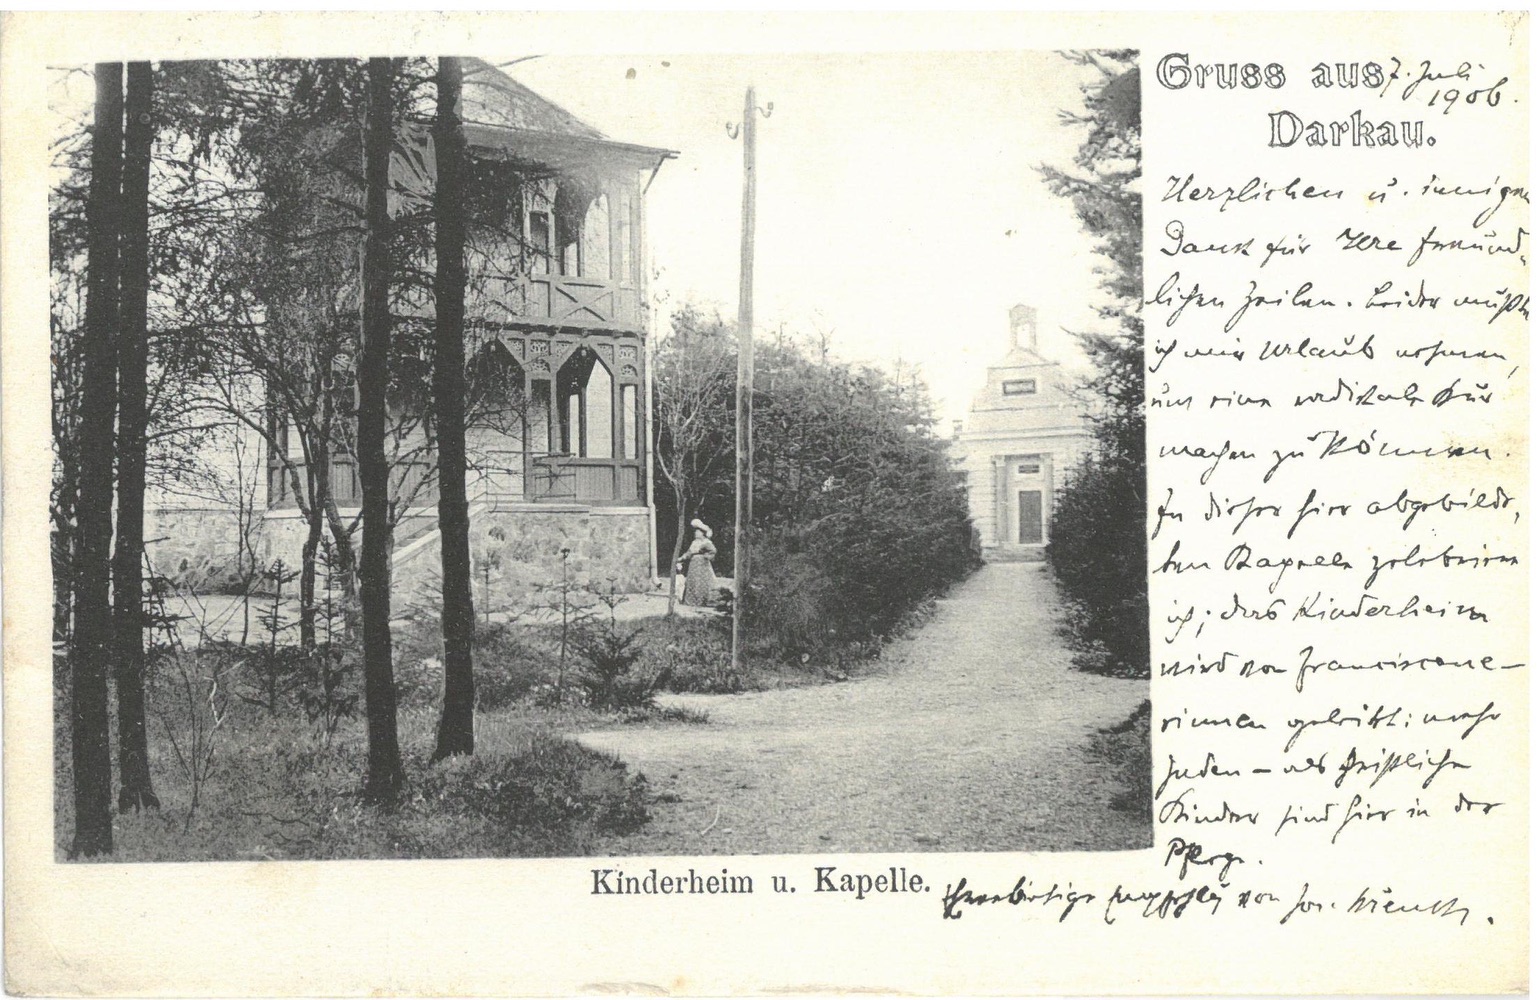 Gruss aus 7. Juli
1906.
Darkau.
Herzlichen u. innigen
Dank für Ihre freund-
lichen Zeilen. Leider mußte
ich mir Urlaub nehmen,
um eine radikale Kur
machen zu können.
In dieser hier abgebilde-
ten Kapelle zelebriere
ich; das Kinderheim
wird von Franciscane-
rinnen geleitet: mehr
Juden – als Christliche
Kinder sind hier in der
Pflege.
Kinderheim u. Kapelle.
von Jos.